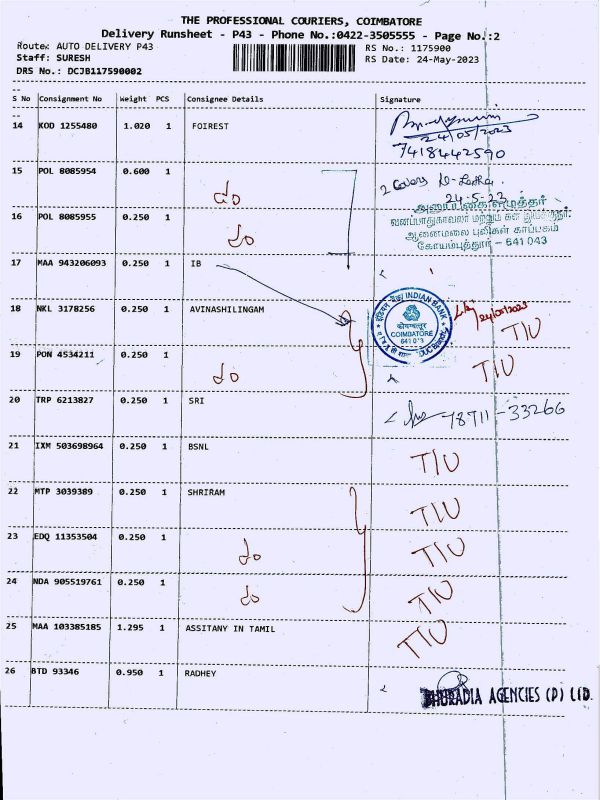 THE PROFESSIONAL COURIERS, COIMBATORE
Delivery Runsheet - P43 - Phone No.:0422-3505555 - Page No.:2
Route: AUTO DELIVERY P43
RS No.: 1175900
Staff: SURESH
RS Date: 24-May-2023
DRS No.: DCJB117590002
S No Consignment No Weight PCS Consignee Details Signature
14 KOD 1255480 1.020 1 FOIREST
24/05/2023
7418442590
15 POL 8085954 0.600 1
do
2 Covers
24.5.23
16 POL 8085955 0.250 1
do
வனப்பாதுகாவலர் மற்றும் கள இயக்குநர்
ஆனைமலை புலிகள் காப்பகம்
கோயம்புத்தூர் - 641 043
17 MAA 943206093 0.250 1 IB
18 NKL 3178256 0.250 1 AVINASHILINGAM
INDIAN BANK
कोयम्बत्तूर
COIMBATORE
641 043
24/05/2023
TIU
19 PON 4534211 0.250 1
do
TIU
20 TRP 6213827 0.250 1 SRI
78711-33266
21 IXM 503698964 0.250 1 BSNL
TIU
22 MTP 3039389 0.250 1 SHRIRAM
TIU
23 EDQ 11353504 0.250 1
do
TIU
24 NDA 905519761 0.250 1
do
TIU
25 MAA 103385185 1.295 1 ASSITANY IN TAMIL
TIU
26 BTD 93346 0.950 1 RADHEY
BHURADIA AGENCIES (P) LTD.